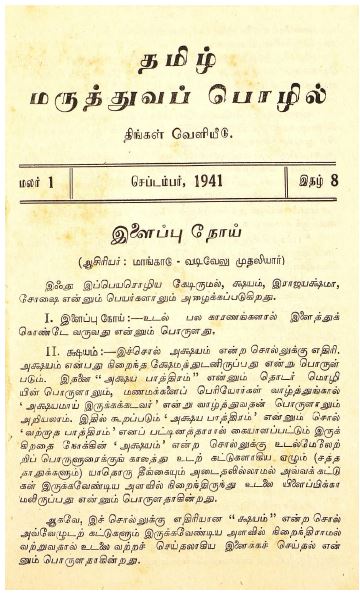 தமிழ்
மருத்துவப் பொழில்
திங்கள் வெளியீடு.
மலர் 1 செப்டம்பர், 1941 இதழ் 8
இளைப்பு நோய்
(ஆசிரியர்: மாங்காடு - வடிவேலு முதலியார்)
இஃது இப்பெயரொழிய கேடிருமல், க்ஷயம், இராஜயக்ஷமா,
சோஷை என்னும் பெயர்களாலும் அழைக்கப்படுகிறது.
I. இளைப்பு நோய்:—உடல் பல காரணங்களால் இளைத்துக்
கொண்டே வருவது என்னும் பொருளது.
II. க்ஷயம்:—இச்சொல் அக்ஷயம் என்ற சொல்லுக்கு எதிரி.
அக்ஷயம் என்பது நிறைந்த க்ஷேமத்துடனிருப்பது என்று பொருள்
படும். இதனை ‘அக்ஷய பாத்திரம்” என்னும் தொடர் மொழி
யின் பொருளாலும், மணமக்களைப் பெரியோர்கள் வாழ்த்துங்கால்
‘அக்ஷயமாய் இருக்கக்கடவர்’ என்று வாழ்த்துவதன் பொருளாலும்
அறியலாம். இதில் கூறப்படும் ‘அக்ஷய பாத்திரம்’ என்னும் சொல்
‘வற்றாத பாத்திரம்’ எனப் பட்டினத்தாரால் கையாளப்பட்டும் இருக்
கிறதை நோக்கின் ‘அக்ஷயம்’ என்ற சொல்லுக்கு உடல்மேலேற்
றிப் பொருளுரைக்குங் காலத்து உடற் கட்டுகளாகிய ஏழும் (சத்த
தாதுக்களும்) யாதொரு தீங்கையும் அடைதலில்லாமல் அவைகட்டு
கள் இருக்கவேண்டிய அளவில் நிறைந்திருந்து உடலை யிளைப்பிக்கா
மலிருப்பது என்னும் பொருளதாகின்றது.
ஆகவே, இச் சொல்லுக்கு எதிரியான “க்ஷயம்” என்ற சொல்
அவ்வேழுடற் கட்டுகளும் இருக்கவேண்டிய அளவில் நிறைந்திராமல்
வற்றுவதால் உடலை வற்றச் செய்தலாகிய இளைக்கச் செய்தல் என்
னும் பொருளதாகின்றது.